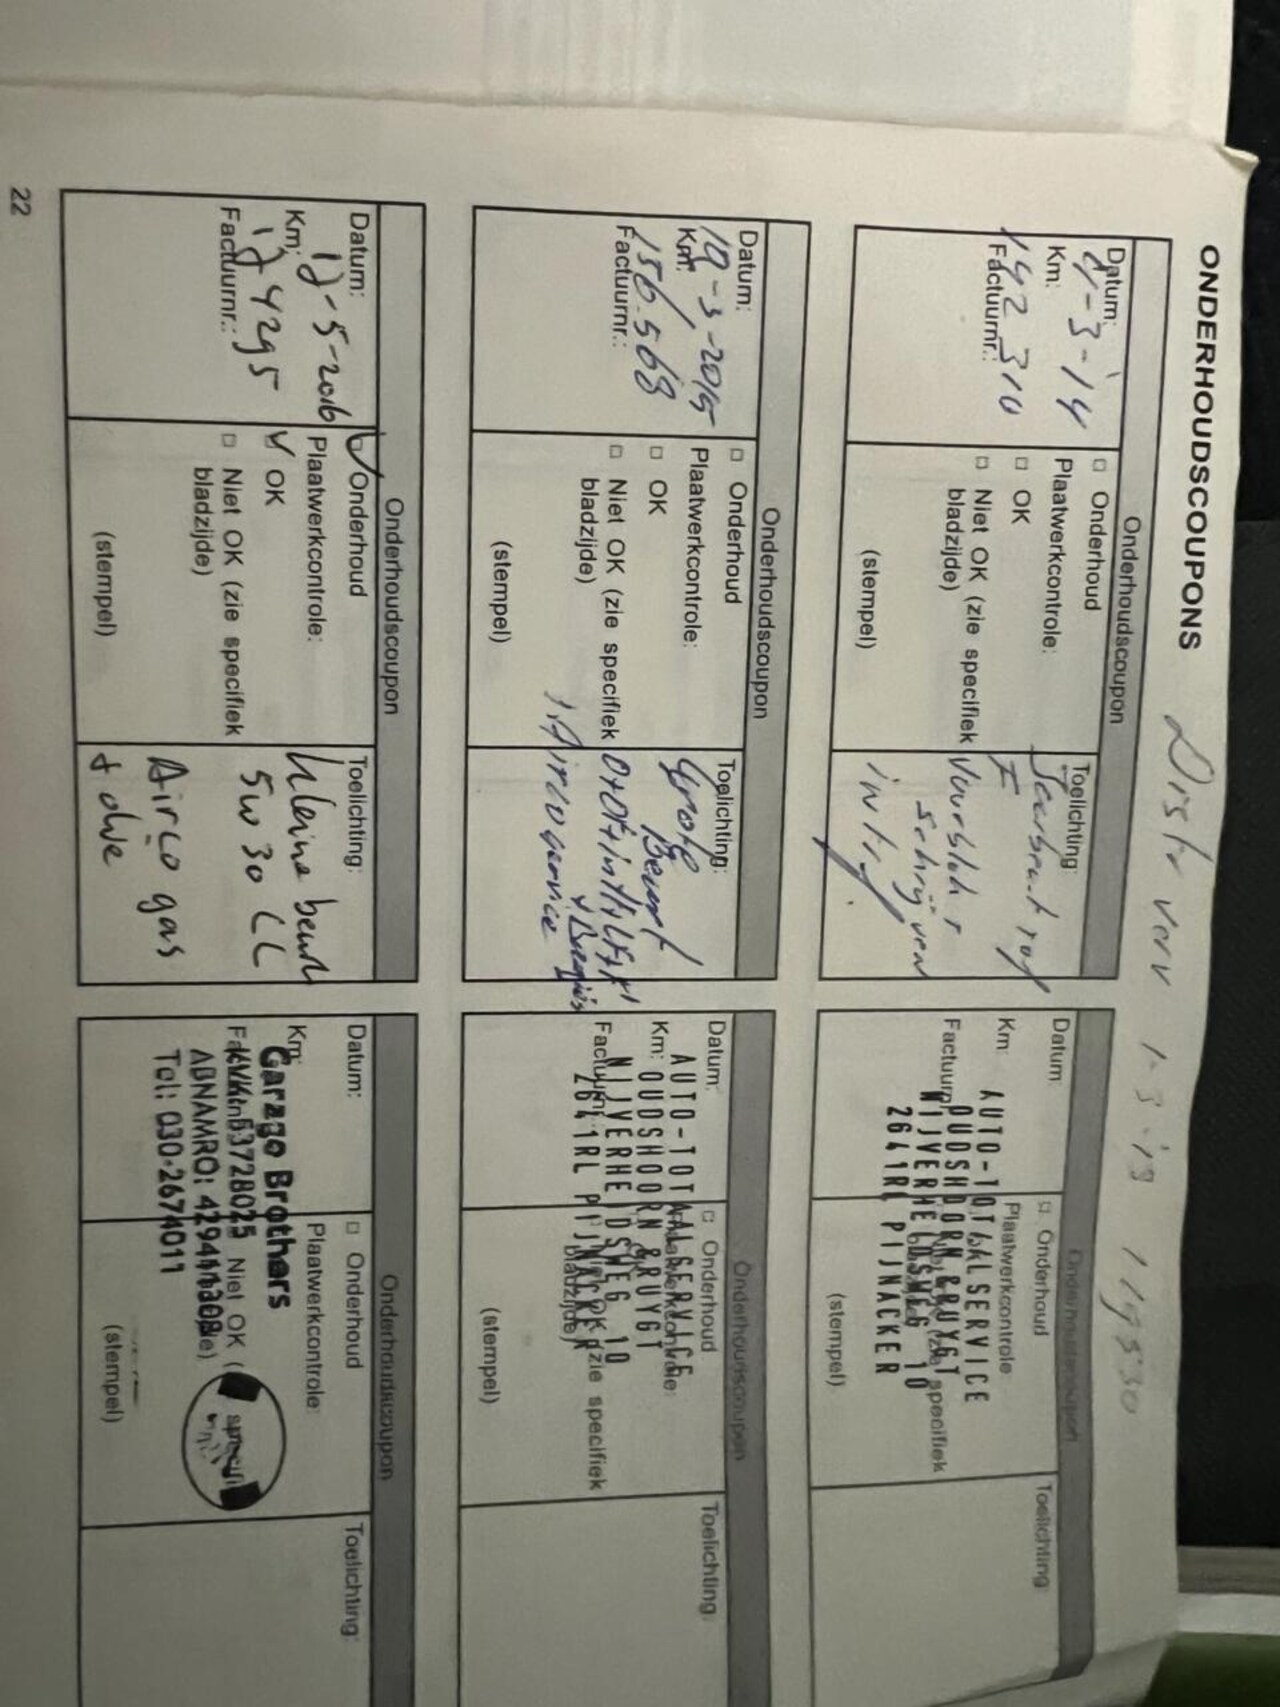 ONDERHOUDSCOUPONS
Distr verv 1-3-13 119530
Onderhoudscoupon
Datum: 4-3-14
Km: 142 310
Factuurnr.:
□ Onderhoud
Plaatwerkcontrole:
□ OK
□ Niet OK (zie specifiek
bladzijde)
(stempel)
Toelichting:
Onderhoudscoupon
Datum:
Km:
Factuurnr
□ Onderhoud
Plaatwerkcontrole
specifiek
(stempel)
Toelichting
AUTO-TOTAALSERVICE
OUDSHOORN & RUYGT
NIJVERHEIDSWEG 10
2641RL PIJNACKER
Onderhoudscoupon
Datum: 19-3-2015
Km: 156.568
Factuurnr.:
□ Onderhoud
Plaatwerkcontrole:
□ OK
□ Niet OK (zie specifiek
bladzijde)
(stempel)
Toelichting:
Grote
Beurt
+ Bougies
Aircoservice
Onderhoudscoupon
Datum:
Km:
Factuurnr
□ Onderhoud
Plaatwerkcontrole:
Niet OK (zie specifiek
bladzijde)
(stempel)
Toelichting:
AUTO-TOTAALSERVICE
OUDSHOORN & RUYGT
NIJVERHEIDSWEG 10
2641RL PIJNACKER
Onderhoudscoupon
Datum: 17-5-2016
Km: 174295
Factuurnr.:
☑ Onderhoud
Plaatwerkcontrole:
☑ OK
□ Niet OK (zie specifiek
bladzijde)
(stempel)
Toelichting:
kleine beurt
5w30 LL
Airco gas
+ olie
Onderhoudscoupon
Datum:
Km:
□ Onderhoud
Plaatwerkcontrole:
Niet OK (
(stempel)
Toelichting:
Garage Brothers
Tel: 030-2674011
22